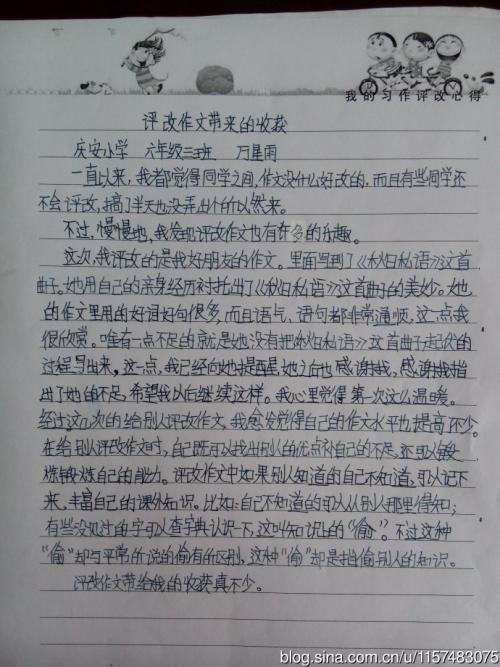 我的习作评改心得
评改作文带来的收获
庆安小学 六年级三班 万星雨
一直以来，我都觉得同学之间，作文没什么好改的，而且有些同学还
不会评改，搞了半天也没弄出个所以然来。
不过，慢慢地，我发现评改作文也有许多的乐趣。
这次，我评改的是我好朋友的作文。里面写到了《秋日私语》这首
曲子，她用自己的亲身经历衬托出了《秋日私语》这首曲子的美妙。她
的作文里用的好词好句很多，而且语气、语句都非常通顺，这一点我
很欣赏。唯有一点不足的就是她没有把《秋日私语》这首曲子起伏的
过程写出来，这一点，我已经向她提醒，她也感谢我，感谢我指
出了她的不足，希望我以后继续这样。我心里觉得第一次这么温暖。
经过这几次的给别人评改作文，我愈发觉得自己的作文水平也提高不少。
在给别人评改作文时，自己既可以找出别人的优点补自己的不足，亦可以锻
炼锻炼自己的能力。评改作文中如果别人知道的自己不知道，可以记下
来，丰富自己的课外知识。比如：自己不知道的可以从别人那里得知；
有些没见过的字可以查字典认识一下，这叫知识上的“偷”。不过这种
“偷”却与平常所说的偷有所区别，这种“偷”却是指偷别人的知识。
评改作文带给我的收获真不少。
blog.sina.com.cn/u/1157483075